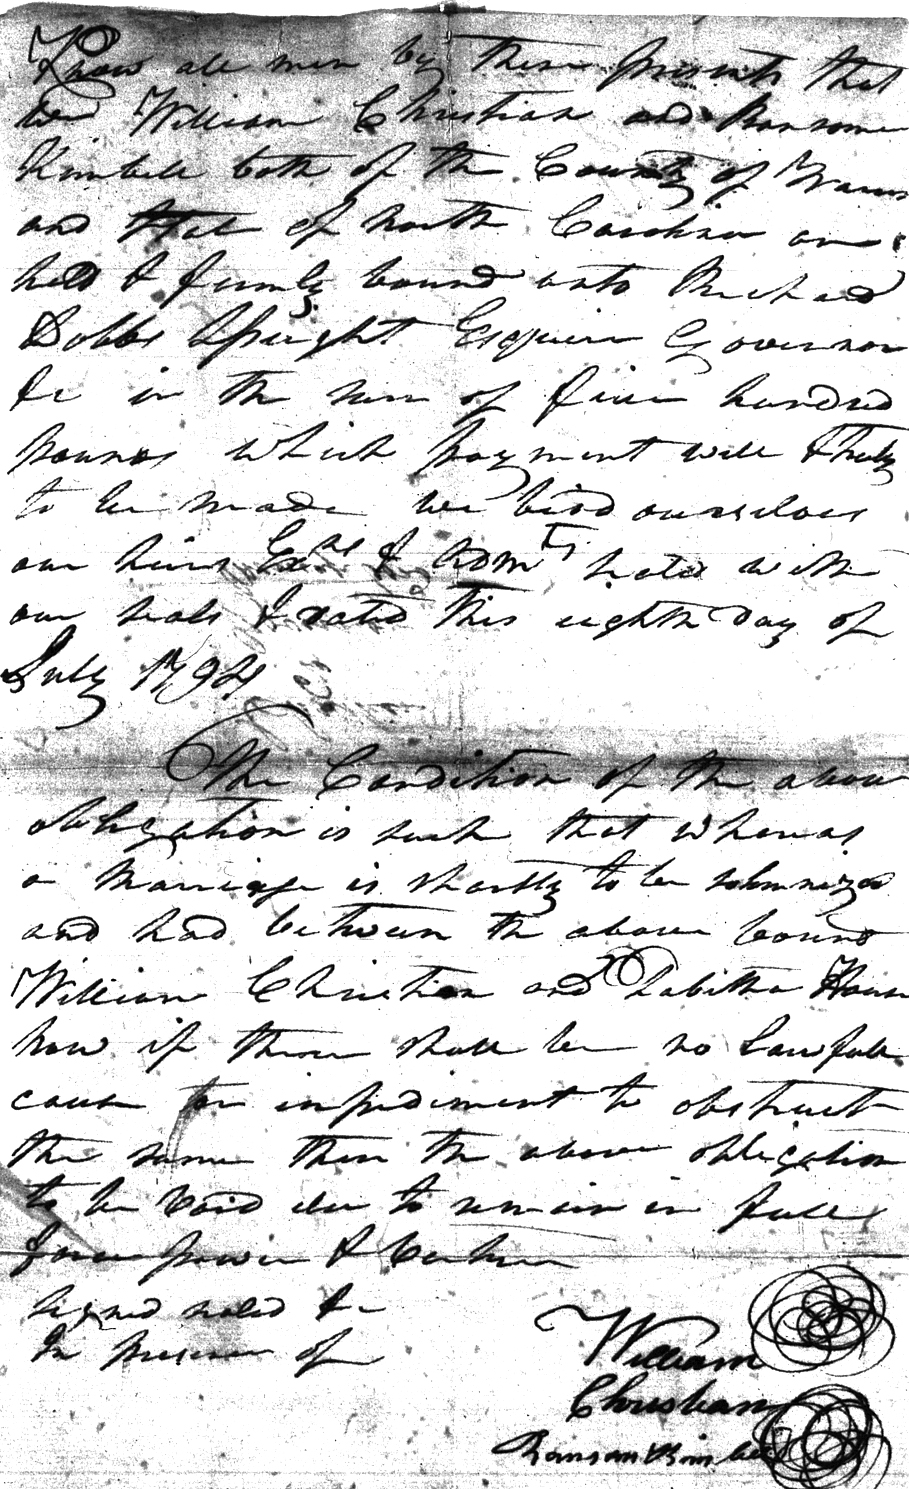 Know all men by these presents that
we William Christian and Ransome
Kimbell both of the County of Warren
and State of North Carolina are
held & firmly bound unto Richard
Dobbs Spaight Esquire Governor
&c in the sum of five hundred
pounds which payment well & truly
to be made we bind ourselves
our heirs Exrs & Admrs seald with
our seals & dated this eighth day of
July 1794
The Condition of the above
obligation is such that whereas
a Marriage is shortly to be solemnized
and had between the above bound
William Christian and Tabitha House
now if there shall be no Lawfull
cause or impediment to obstruct
the same then the above obligation
to be void else to remain in full
force power & Vertue
Signed seled &c
In Presence of
William
Christian
Ransom Kimbell